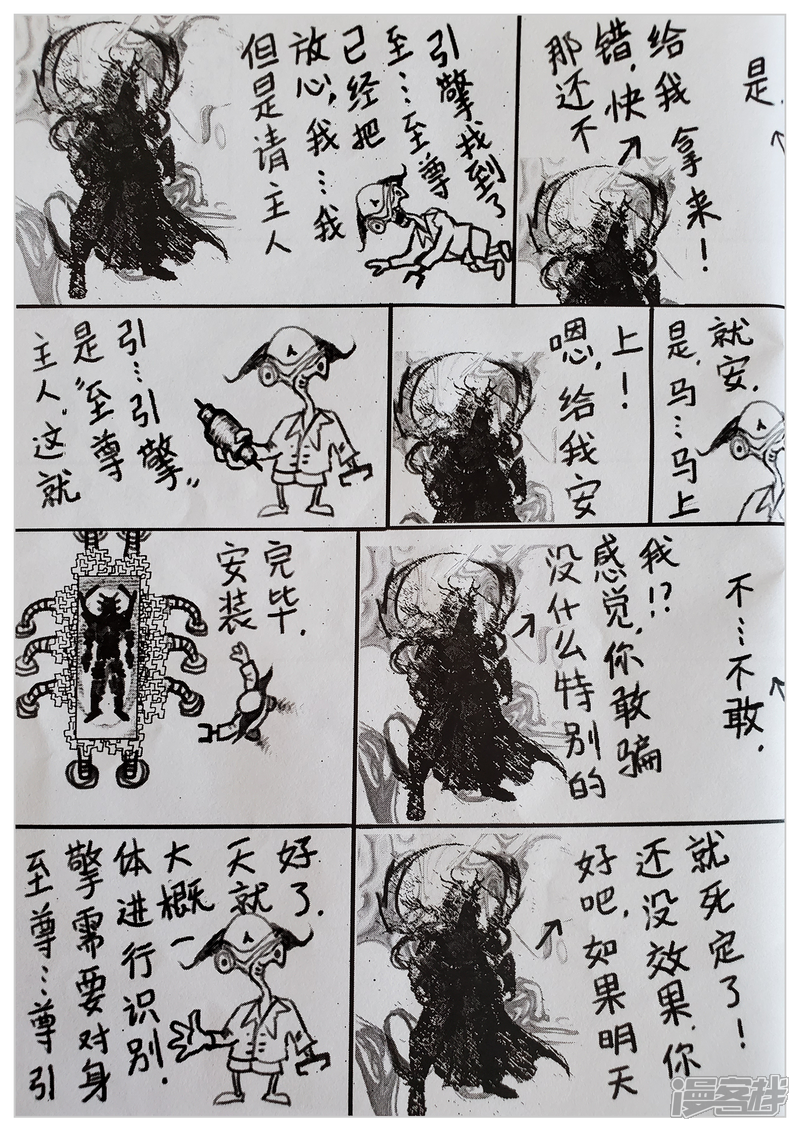 但是请主人
放心,我…我
已经把
至…至尊
引擎找到了
那还不
错,快
给我拿来!
是.
主人"这就
是"至尊
引…引擎"
嗯,给我安
上!
是,马…马上
就安.
安装
完毕.
没什么特别的
感觉,你敢骗
我!?
不…不敢.
至尊…尊引
擎需要对身
体进行识别.
大概一
天就
好了.
好吧,如果明天
还没效果,你
就死定了!
漫客栈